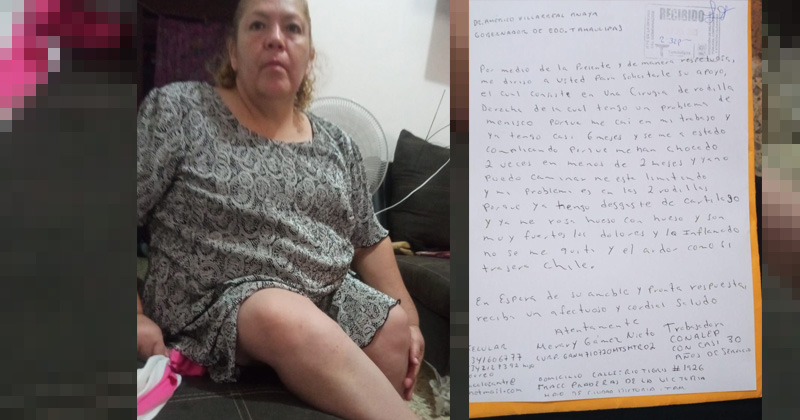 DR. AMERICO VILLARREAL ANAYA
GOBERNADOR DE EDO. TAMAULIPAS
RECIBIDO
Por medio de la Presente y de manera respetuosa,
me dirijo a Usted Para solicitarle su apoyo,
el cual consiste en Una Cirugia de rodilla
Derecha de la cual tengo un problema de
menisco porque me cai en mi trabajo y
ya tengo casi 6 meses y se me a estado
complicando Porque me han chocado
2 veces en menos de 2 meses y ya no
puedo caminar me esta limitando
y mi Problema es en las 2 rodillas
Porque ya tengo desgaste de cartilago
y ya me rosa hueso con hueso y son
muy fuertes los dolores y lo Inflamado
no se me quita y el ardor como si
trajera chile.
En Espera de su amable y Pronta respuesta,
reciba un afectuoso y cordial Saludo
Atentamente
Merary Gómez Nieto
Trabajadora
CONALEP
CON CASI 30
AÑOS DE
DOMICILIO CALLE: RIO TIGRIS #1526
DE LA VICTORIA